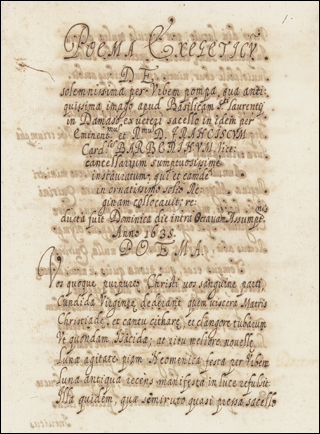 1
POEMA EXEGETICV̄
DE
solemnissima per Vrbem pompa, qua anti-
quissima imago apud Basilicam S. Laurentij
in Damaso, ex uetegi sacello in idem per
Eminent.mũ et R.mũ D. FRANCISCVM
Card.lē BARBERINVM Vice
cancellarium sumptuosissime
instauratum, qui et eamdē
in ornatissimo solio Re-
ginam collocauit; re-
ducta fuit Dominica die intra Octauam Assumpt.
Anno 1638.
POEMA.
Vos quoque purpureo Christi uos sanguine nati,
Candida Virgineę dedeçant quem uiscera Matris
Christiadę, et cantu citharę, et clangore tubarum
Vt quondam Isacidę; at ritu meliore nouellę
Lunę agitate piam Neomenica festa per Vrbem
Luna antiqua recens manifesta in luce refulsit
Illa quidem, qua semiruto quasi pressa sacello